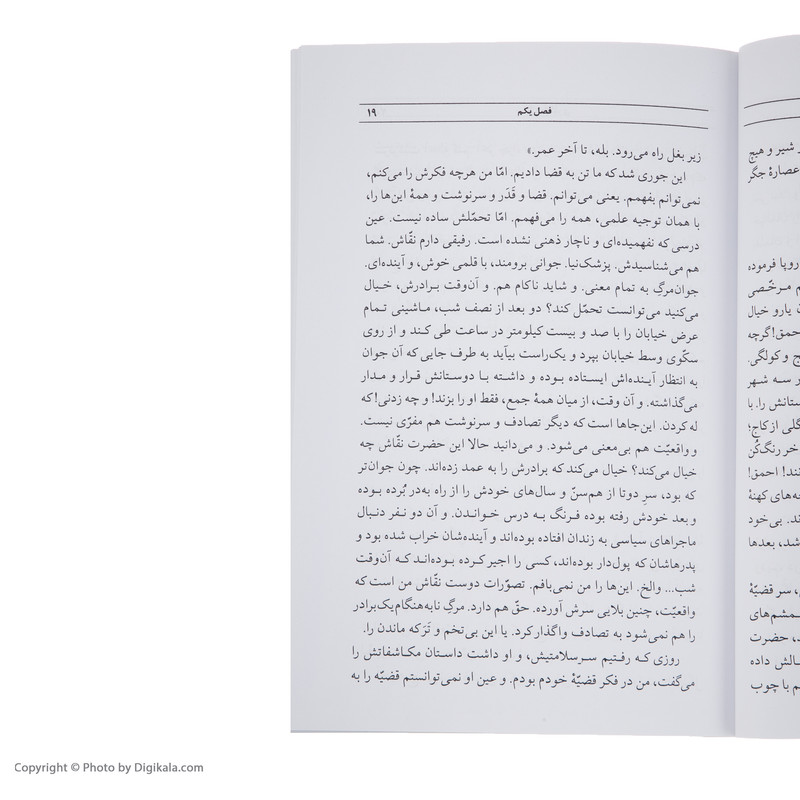 فصل یکم
۱۹
زیر بغل راه می‌رود. بله، تا آخر عمر.»
این جوری شد که ما تن به قضا دادیم. امّا من هرچه فکرش را می‌کنم،
نمی‌توانم بفهمم. یعنی می‌توانم. قضا و قَدَر و سرنوشت و همهٔ این‌ها را،
با همان توجیه علمی، همه را می‌فهمم. امّا تحمّلش ساده نیست. عین
درسی که نفهمیده‌ای و ناچار ذهنی نشده است. رفیقی دارم نقّاش. شما
هم می‌شناسیدش. پزشک‌نیا. جوانی برومند، با قلمی خوش، و آینده‌ای.
جوان‌مرگِ به تمام معنی. و شاید ناکام هم. و آن‌وقت برادرش، خیال
می‌کنید می‌توانست تحمّل کند؟ دو بعد از نصف شب، ماشینی تمام
عرض خیابان را با صد و بیست کیلومتر در ساعت طی کند و از روی
سکّوی وسط خیابان بپرد و یک‌راست بیآید به طرف جایی که آن جوان
به انتظار آینده‌اش ایستاده بوده و داشته با دوستانش قرار و مدار
می‌گذاشته. و آن وقت، از میان همهٔ جمع، فقط او را بزند! و چه زدنی! که
له کردن. این‌جاها است که دیگر تصادف و سرنوشت هم مفرّی نیست.
و واقعیّت هم بی‌معنی می‌شود. و می‌دانید حالا این حضرت نقّاش چه
خیال می‌کند؟ خیال می‌کند که برادرش را به عمد زده‌اند. چون جوان‌تر
که بود، سرِ دوتا از هم‌سنّ و سال‌های خودش را از راه به‌در بُرده بوده
و بعد خودش رفته بوده فرنگ به درس خواندن. و آن دو نفر دنبال
ماجراهای سیاسی به زندان افتاده بوده‌اند و آینده‌شان خراب شده بود و
پدرهاشان که پول‌دار بوده‌اند، کسی را اجیر کرده بوده‌اند که آن‌وقت
شب... والخ. این‌ها را من نمی‌بافم. تصوّرات دوست نقّاش من است که
واقعیّت، چنین بلایی سرش آورده. حقّ هم دارد. مرگِ نابه‌هنگام یک برادر
را هم نمی‌شود به تصادف واگذار کرد. یا این بی‌تخم و تَرَکه ماندن را.
روزی که رفتیم سرسلامتیش، و او داشت داستان مکاشفاتش را
می‌گفت، من در فکر قضیّهٔ خودم بودم. و عین او نمی‌توانستم قضیّه را به
شیر و هیچ
عصارهٔ جگر
روپا فرموده
مرخّصی
یارو خیال
احمق! گرچه
و کولگی.
سه شهر
ستانش را. با
گلی از کاج؛
خر رنگ‌کُن
نند! احمق!
چه‌های کهنهٔ
ند. بی‌خود
شد، بعدها
سر قضیّهٔ
مشم‌های
حضرت
الش داده
م با چوب
Copyright © Photo by Digikala.com